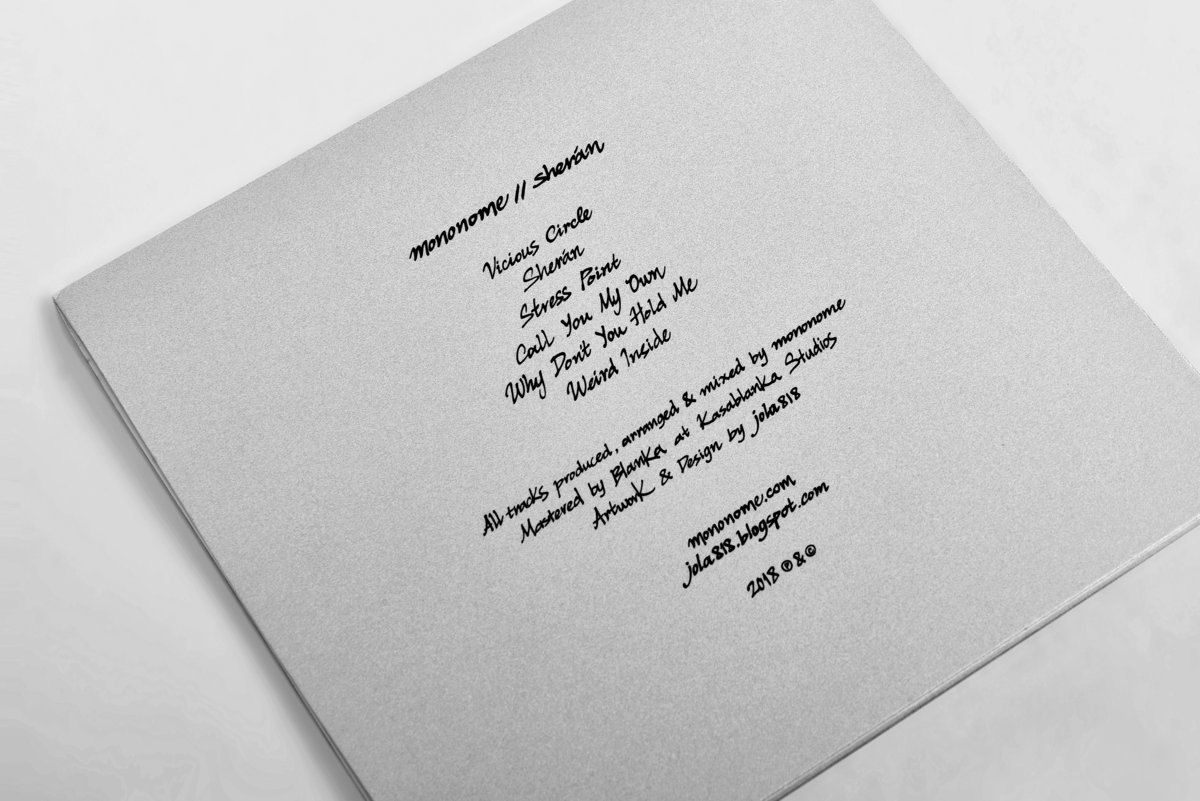 mononome // sherán
Vicious Circle
Sherán
Stress Point
Call You My Own
Why Don't You Hold Me
Weird Inside
All tracks produced, arranged & mixed by mononome
Mastered by Blanka at Kasablanka Studios
Artwork & Design by jola818
mononome.com
jola818.blogspot.com
2018 ℗ & ©